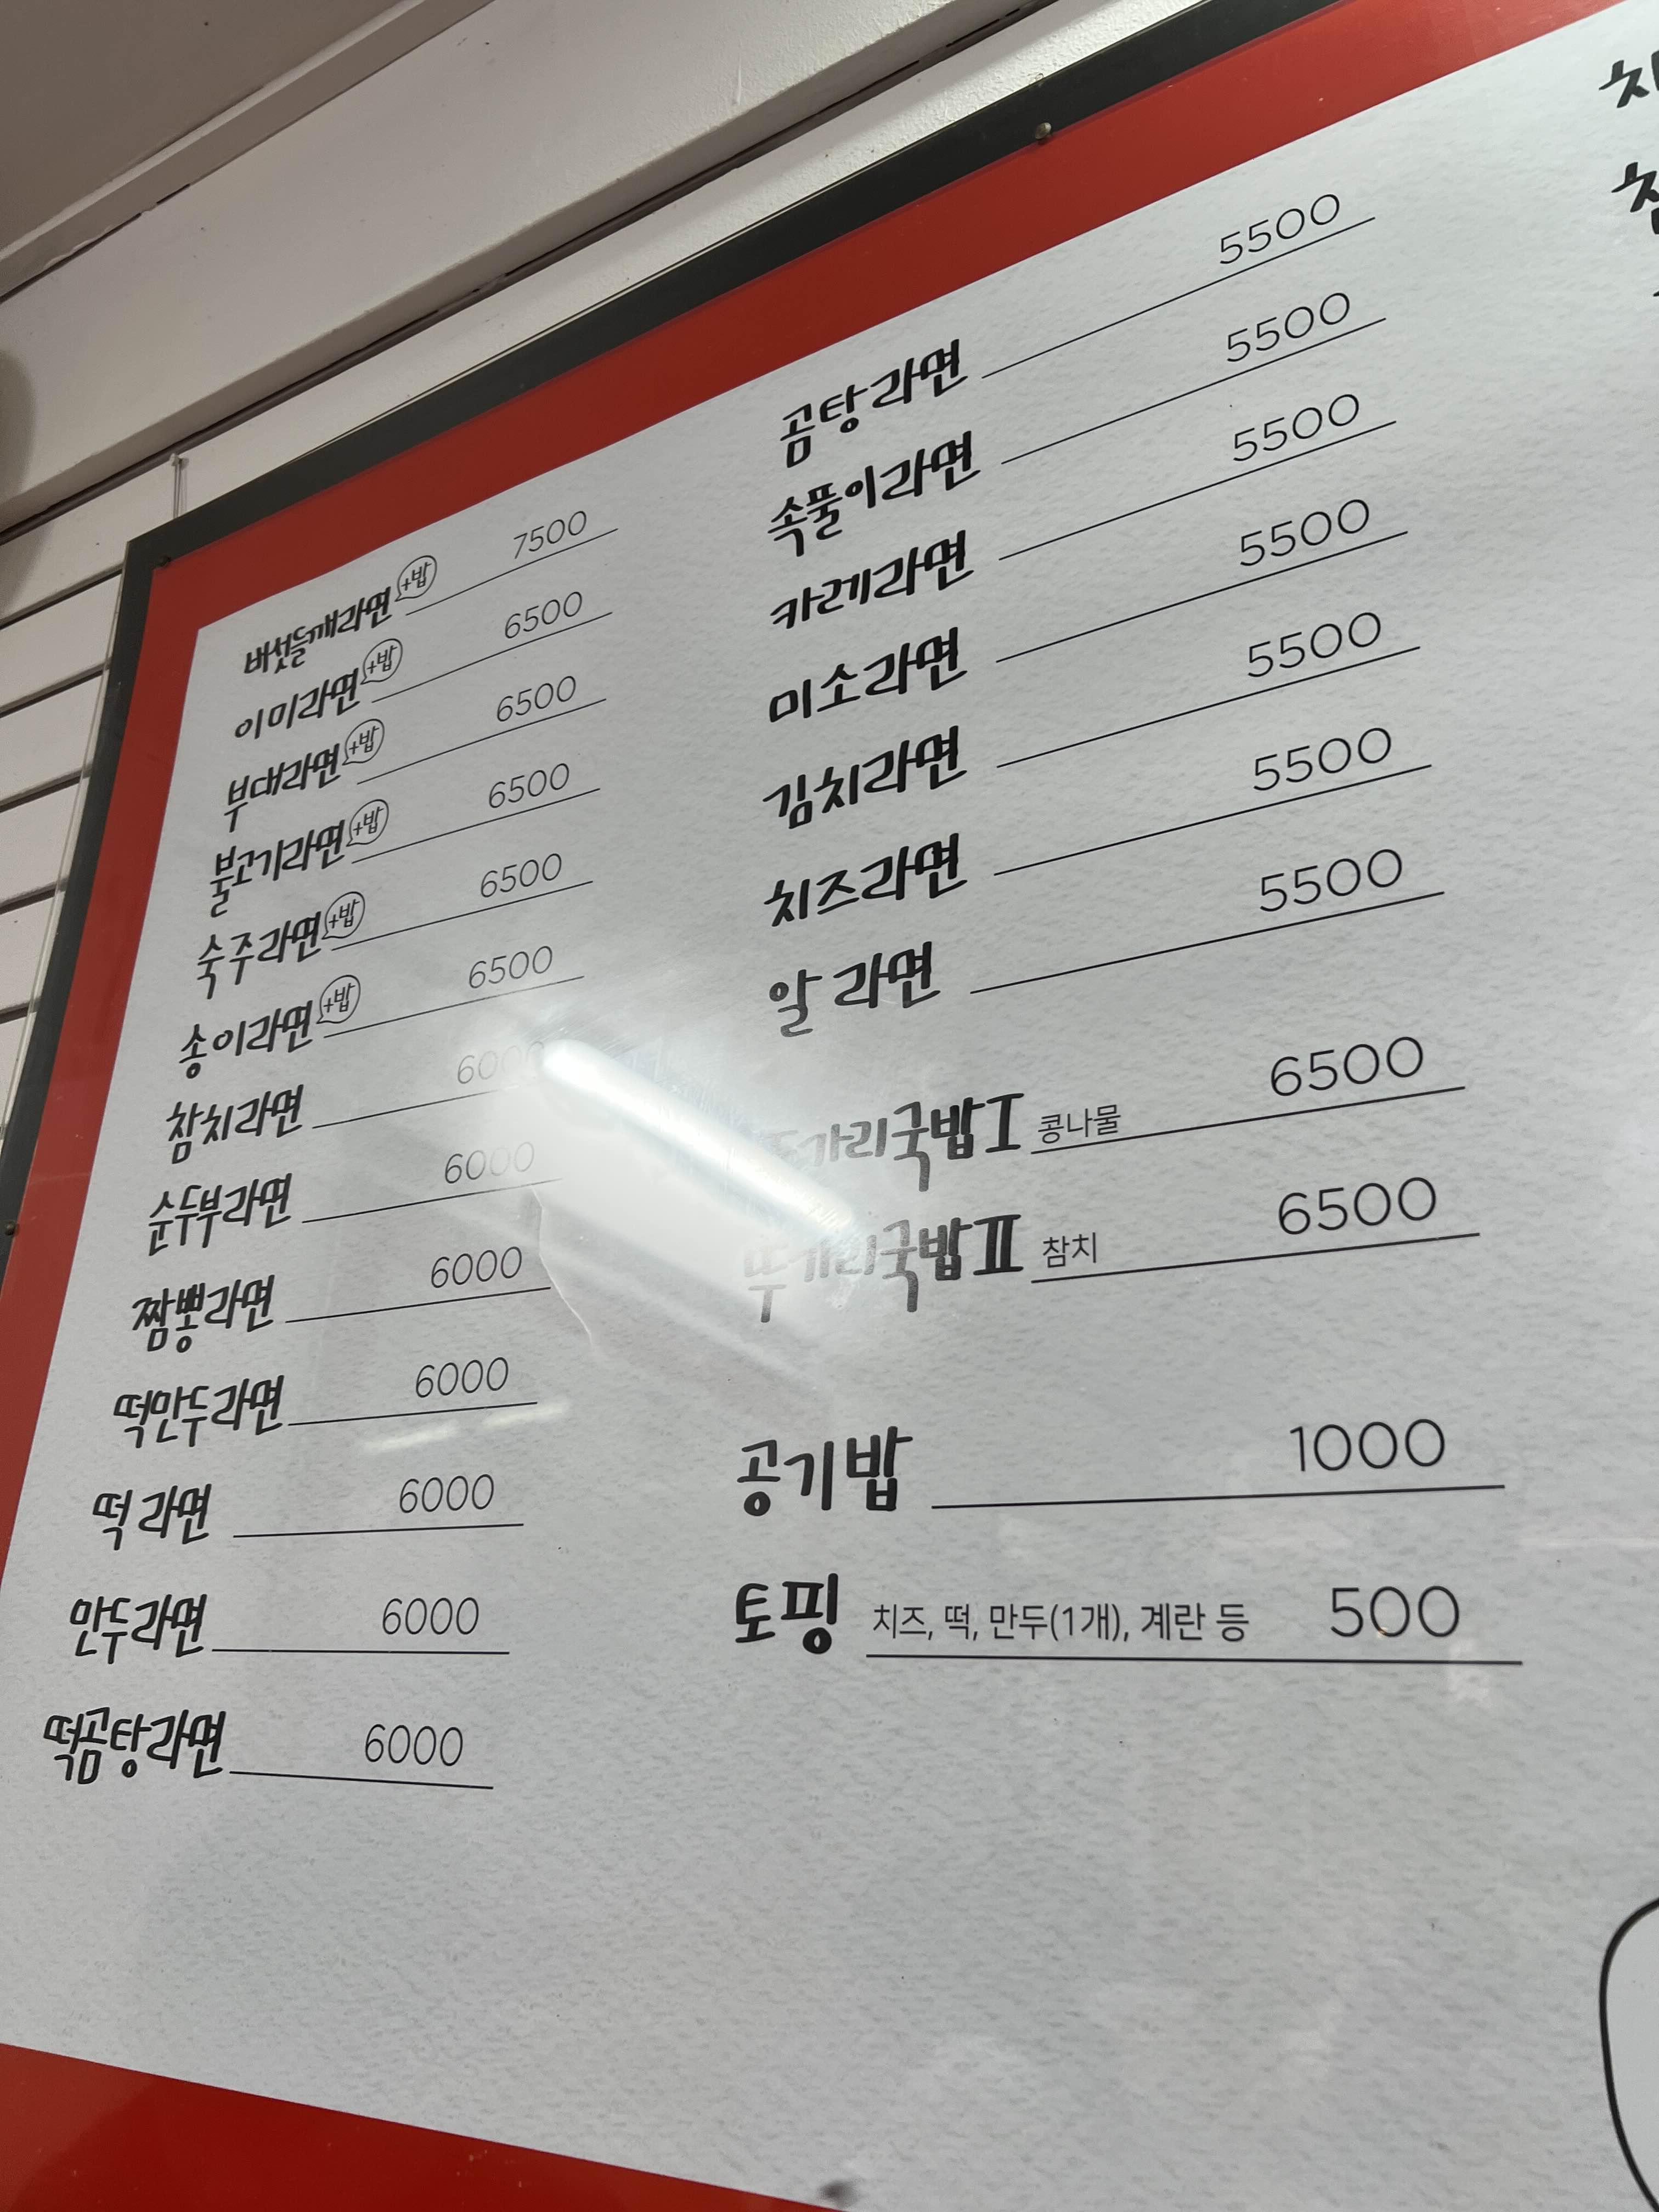 버섯들깨라면 +밥 7500
이미라면 +밥 6500
부대라면 +밥 6500
불고기라면 +밥 6500
숙주라면 +밥 6500
송이라면 +밥 6500
참치라면 6000
순두부라면 6000
짬뽕라면 6000
떡만두라면 6000
떡라면 6000
만두라면 6000
떡곰탕라면 6000
곰탕라면 5500
속풀이라면 5500
카레라면 5500
미소라면 5500
김치라면 5500
치즈라면 5500
알라면 5500
콩나물 6500
뚝가리국밥Ⅱ 참치 6500
공기밥 1000
토핑 치즈, 떡, 만두(1개), 계란 등 500